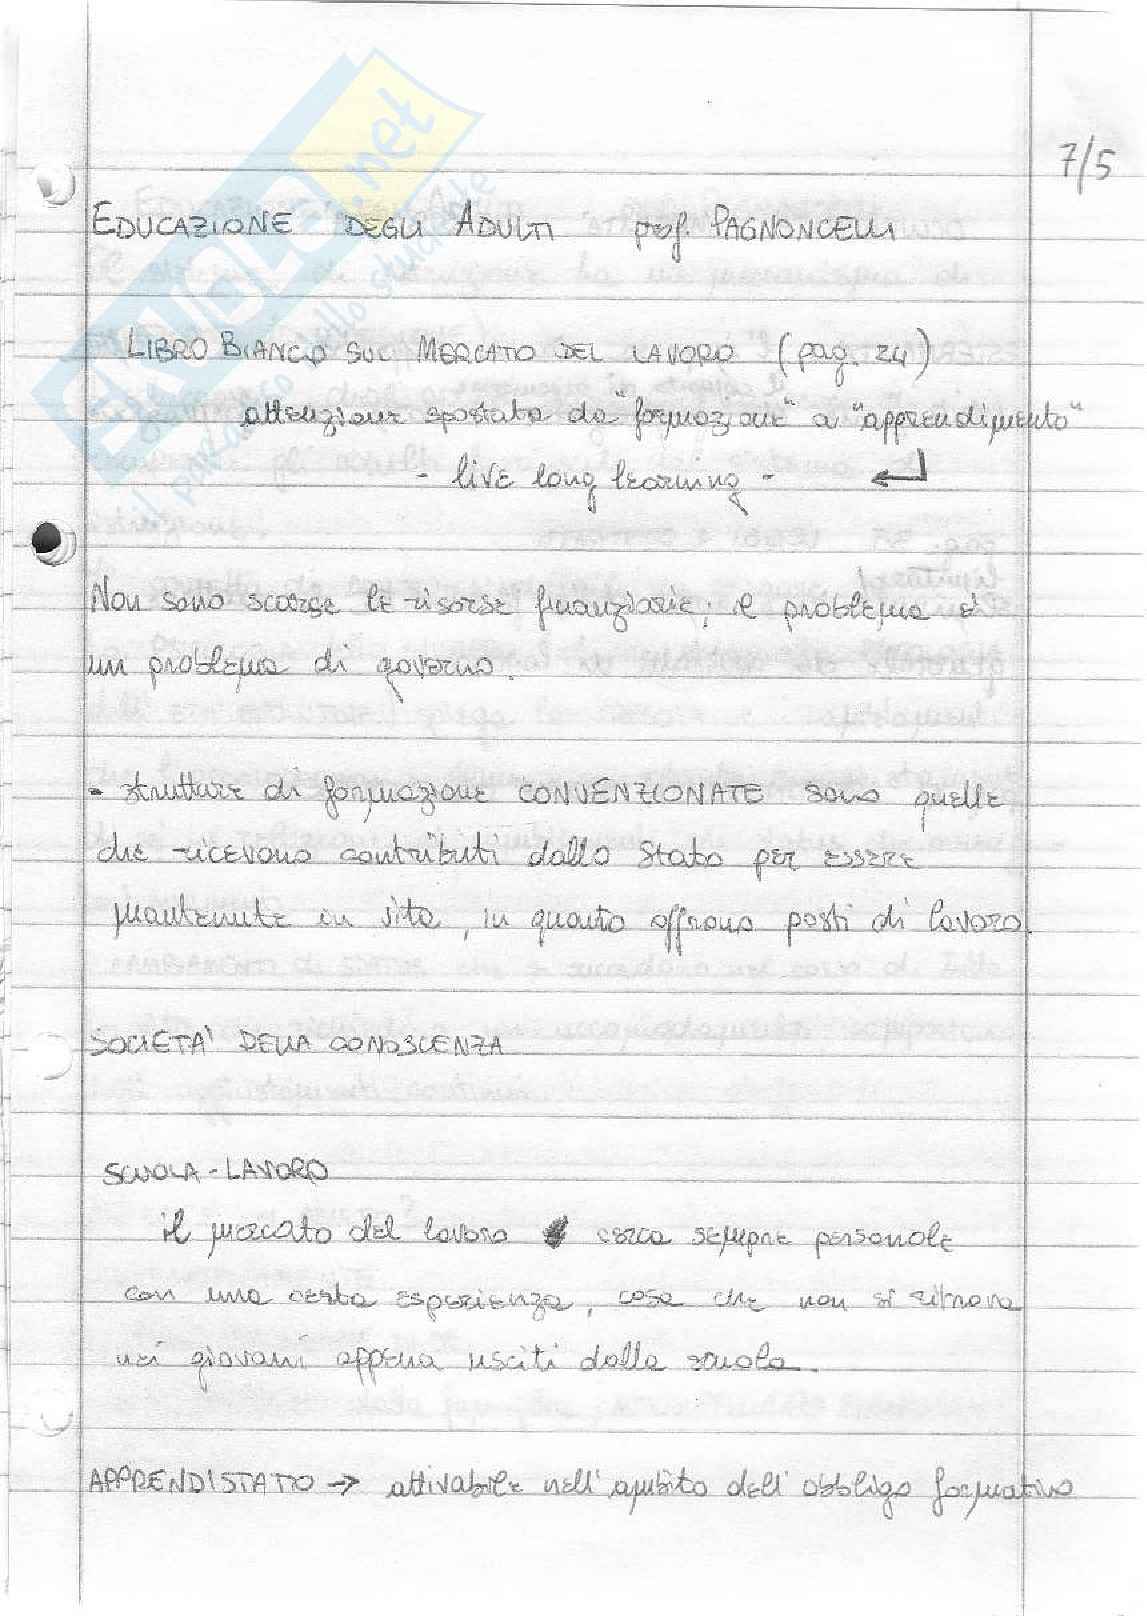 7/5
EDUCAZIONE DEGLI ADULTI prof. PAGNONCELLI
LIBRO BIANCO SUL MERCATO DEL LAVORO (pag. 24)
attenzione spostata da "formazione" a "apprendimento"
- live long learning -
Non sono scarse le risorse finanziarie; il problema è
un problema di governo.
- strutture di formazione CONVENZIONATE sono quelle
che ricevono contributi dallo Stato per essere
mantenute in vita, in quanto offrono posti di lavoro.
SOCIETA' DELLA CONOSCENZA
SCUOLA - LAVORO
il mercato del lavoro cerca sempre personale
con una certa esperienza, cosa che non si ritrova
nei giovani appena usciti dalla scuola.
APPRENDISTATO → attivabile nell'ambito dell'obbligo formativo
SKUOLA.net
il paradiso dello studente